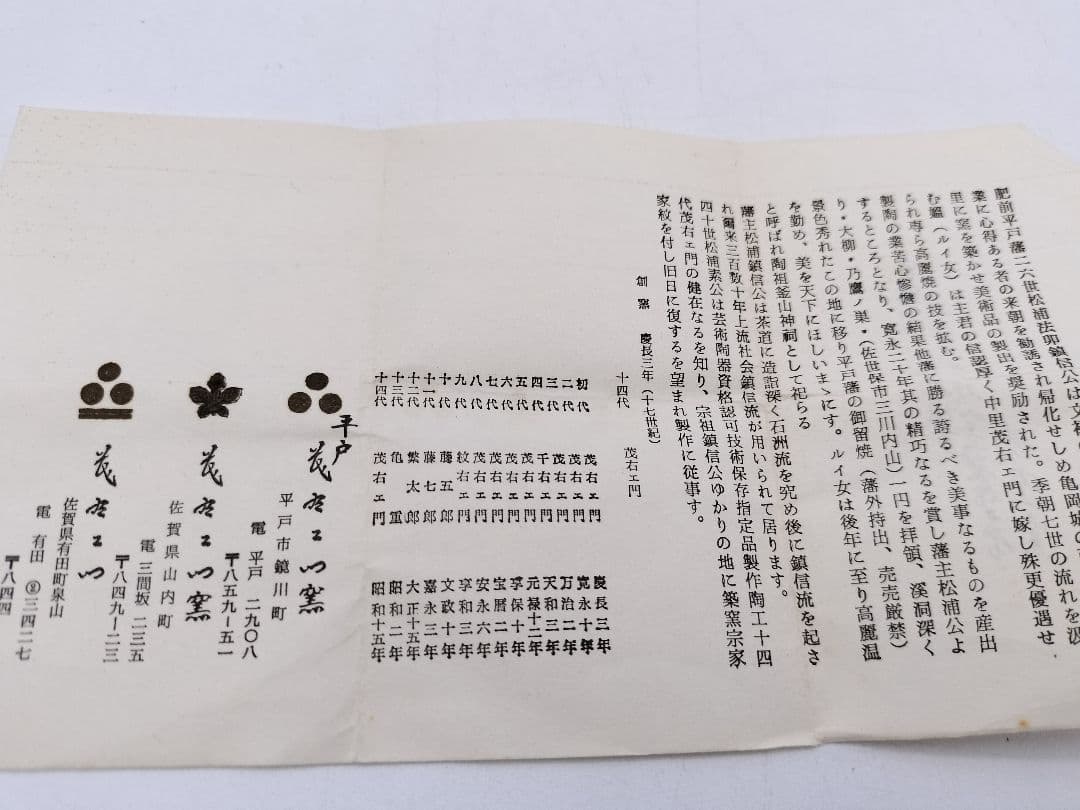 肥前平戸藩二六世松浦法卯鎮信公は文禄
業に心得ある者の来朝を勧誘され帰化せしめ亀岡城の
里に窯を築かせ美術品の製出を奨励された。季朝七世の流れを汲
む媼(ルイ女)は主君の信認厚く中里茂右ェ門に嫁し殊更優遇せ
られ専ら高麗焼の技を拡む。
製陶の業苦心惨憺の結果他藩に勝る誇るべき美事なるものを産出
するところとなり、寛永二十年其の精巧なるを賞し藩主松浦公よ
り・大柳・乃鷹ノ巣・(佐世保市三川内山)一円を拝領、溪洞深く
景色秀れたこの地に移り平戸藩の御留焼(藩外持出、売売厳禁)
を勤め、美を天下にほしいまゝにす。ルイ女は後年に至り高麗媼
と呼ばれ陶祖釜山神祠として祀らる
藩主松浦鎮信公は茶道に造詣深く石洲流を究め後に鎮信流を起さ
れ爾来三百数十年上流社会鎮信流が用いられて居ります。
四十世松浦素公は芸術陶器資格認可技術保存指定品製作陶工十四
代茂右ェ門の健在なるを知り、宗祖鎮信公ゆかりの地に築窯宗家
家紋を付し旧日に復するを望まれ製作に従事す。
創窯 慶長三年(十七世紀)
十四代 茂右ェ門
初代 茂右ェ門 慶長三年
二代 茂右ェ門 寛永十年
三代 茂右ェ門 万治二年
四代 千右ェ門 天和三年
五代 茂右ェ門 元禄十二年
六代 茂右ェ門 享保十年
七代 茂右ェ門 宝暦二年
八代 茂右ェ門 安永六年
九代 紋右ェ門 享和三年
十代 藤五郎 文政十年
十一代 藤七郎 嘉永三年
十二代 繁太郎 大正十五年
十三代 亀重 昭和二年
十四代 茂右ェ門 昭和十五年
平戸 茂右ェ門窯
平戸市鏡川町
電 平戸 二九〇八
〒八五九ー五一
茂右ェ門窯
佐賀県山内町
電 三間坂 二三五
〒八四九ー二三
茂右ェ門
佐賀県有田町泉山
電 有田 ㊁三四二七
〒八四四